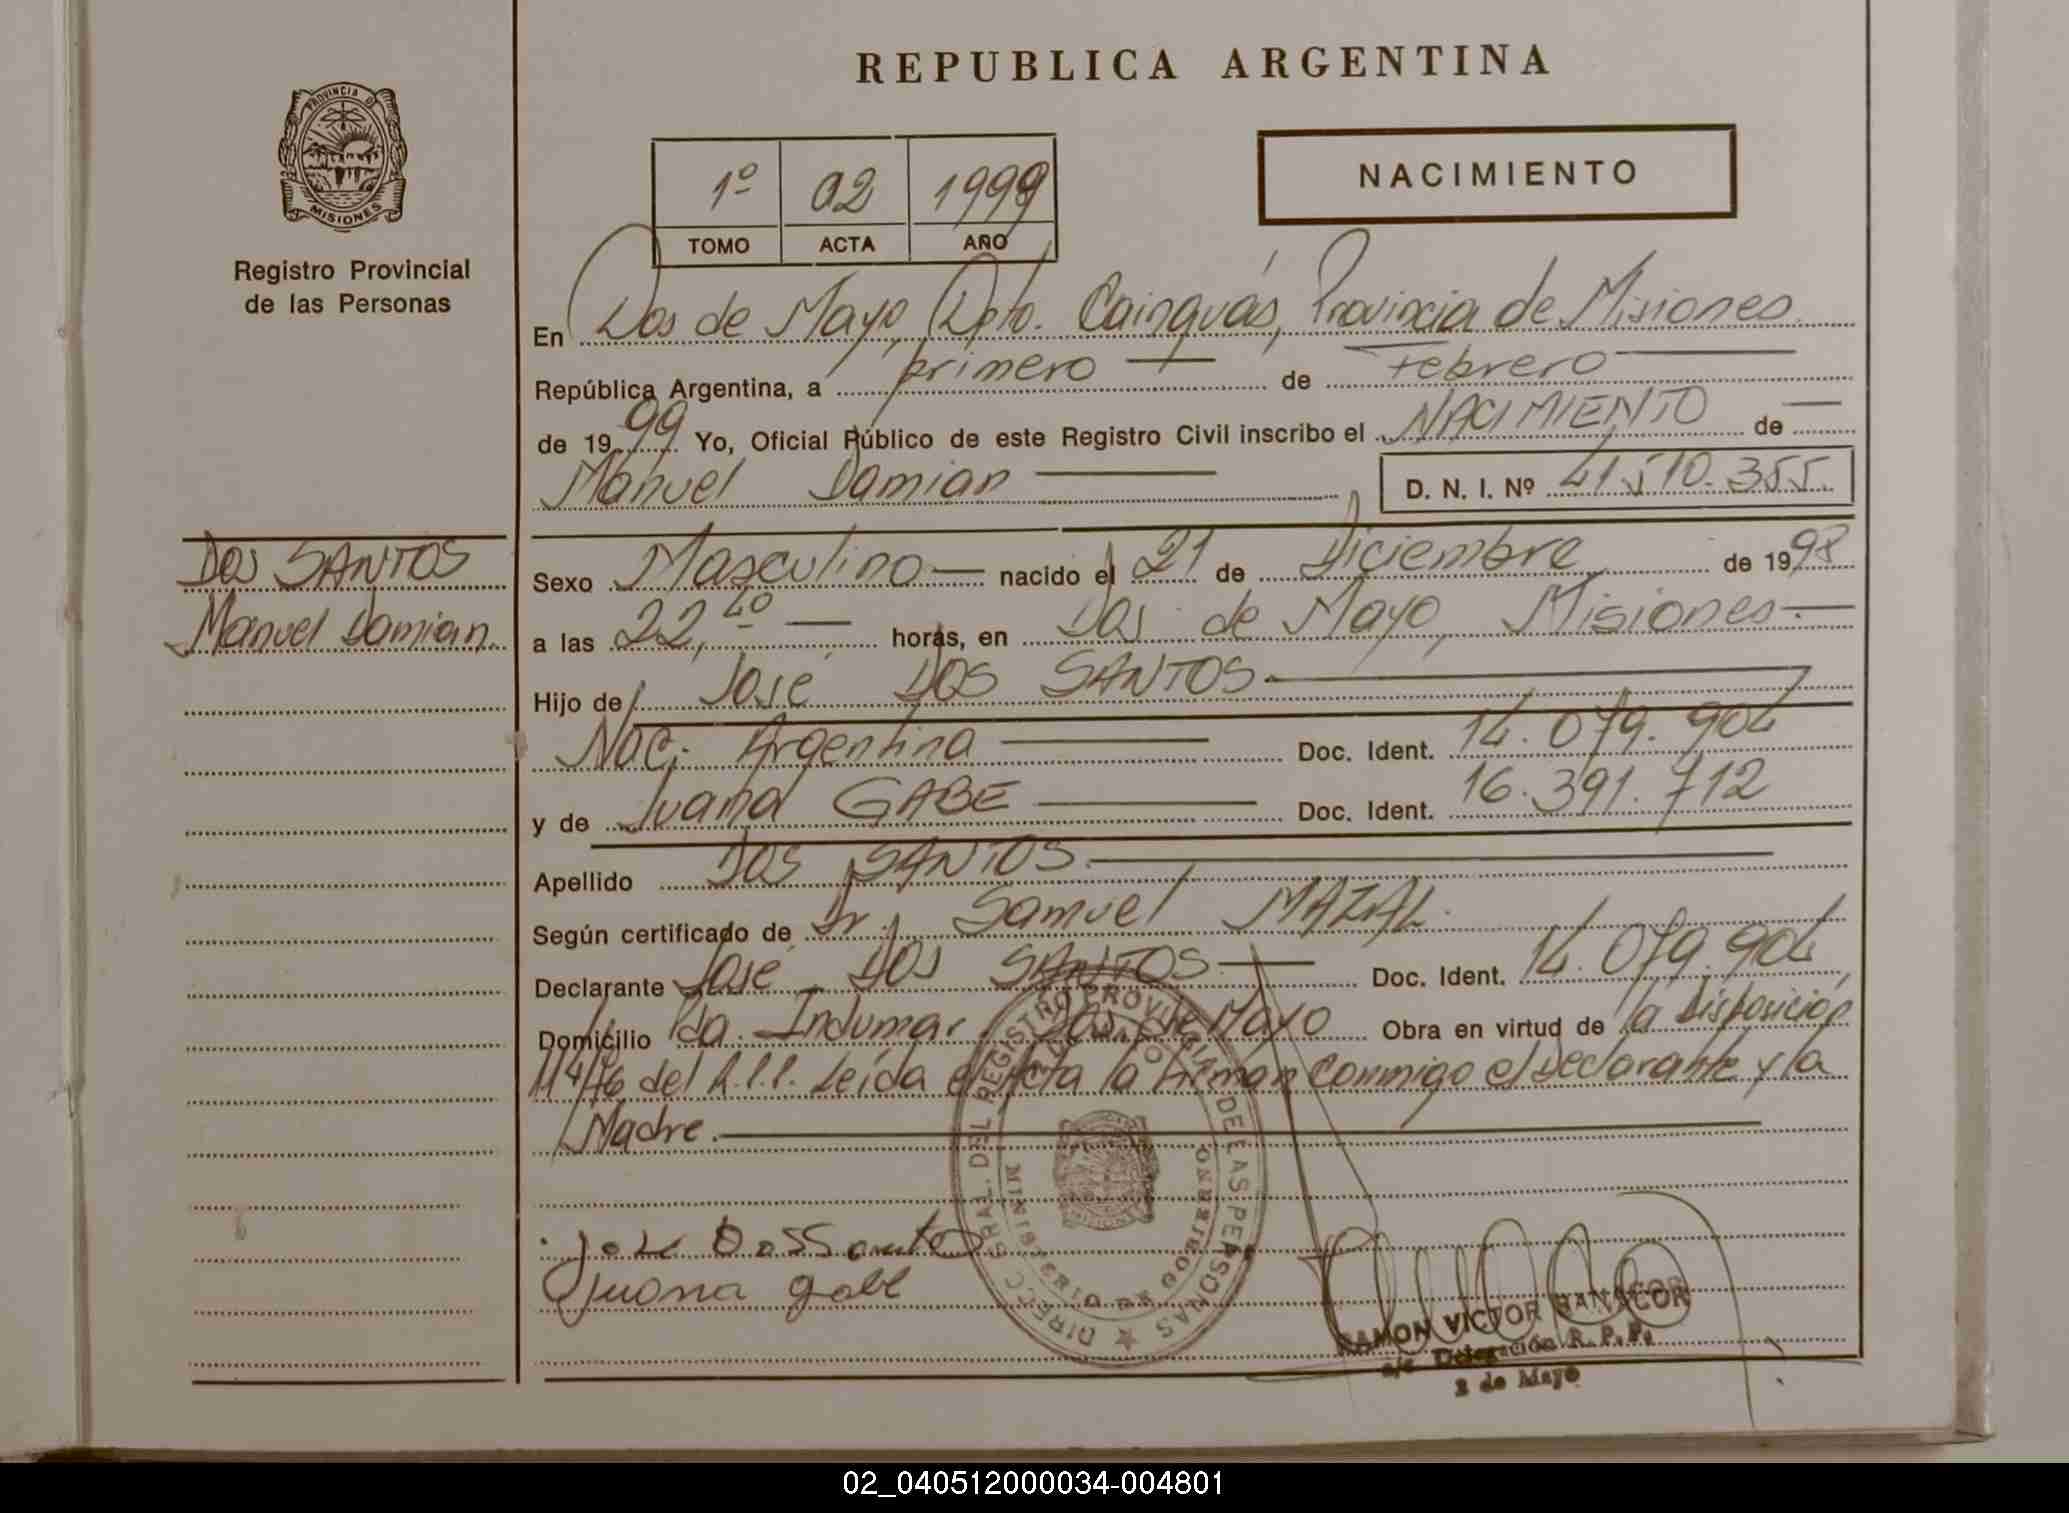 REPUBLICA ARGENTINA
PROVINCIA DE
MISIONES
Registro Provincial
de las Personas
1º 02 1999
TOMO ACTA AÑO
NACIMIENTO
En Dos de Mayo, Dpto. Cainguás, Provincia de Misiones
República Argentina, a primero de Febrero
de 1999 Yo, Oficial Público de este Registro Civil inscribo el NACIMIENTO de
Manuel Damian D. N. I. Nº 41.510.355.
DOS SANTOS
Manuel Damian.
Sexo Masculino nacido el 21 de Diciembre de 1998
a las 22,40 horas, en Dos de Mayo, Misiones.
Hijo de José DOS SANTOS
Nac. Argentina Doc. Ident. 14.079.904
y de Juana GABE Doc. Ident. 16.391.712
Apellido DOS SANTOS
Según certificado de Dr. Samuel MAZAL.
Declarante José DOS SANTOS Doc. Ident. 14.079.904
Domicilio Pda. Indumar. Dos de Mayo Obra en virtud de la Disposición
114/76 del R.P.P. Leída el Acta la firman conmigo el Declarante y la
Madre.
DIREC. GRAL. DEL REGISTRO PROVINCIAL DE LAS PERSONAS
MINISTERIO DE GOBIERNO
MISIONES
Jose Dos Santos
Juana gabe
RAMON VICTOR
a/c Delegación R. P. P.
2 de Mayo
02_040512000034-004801